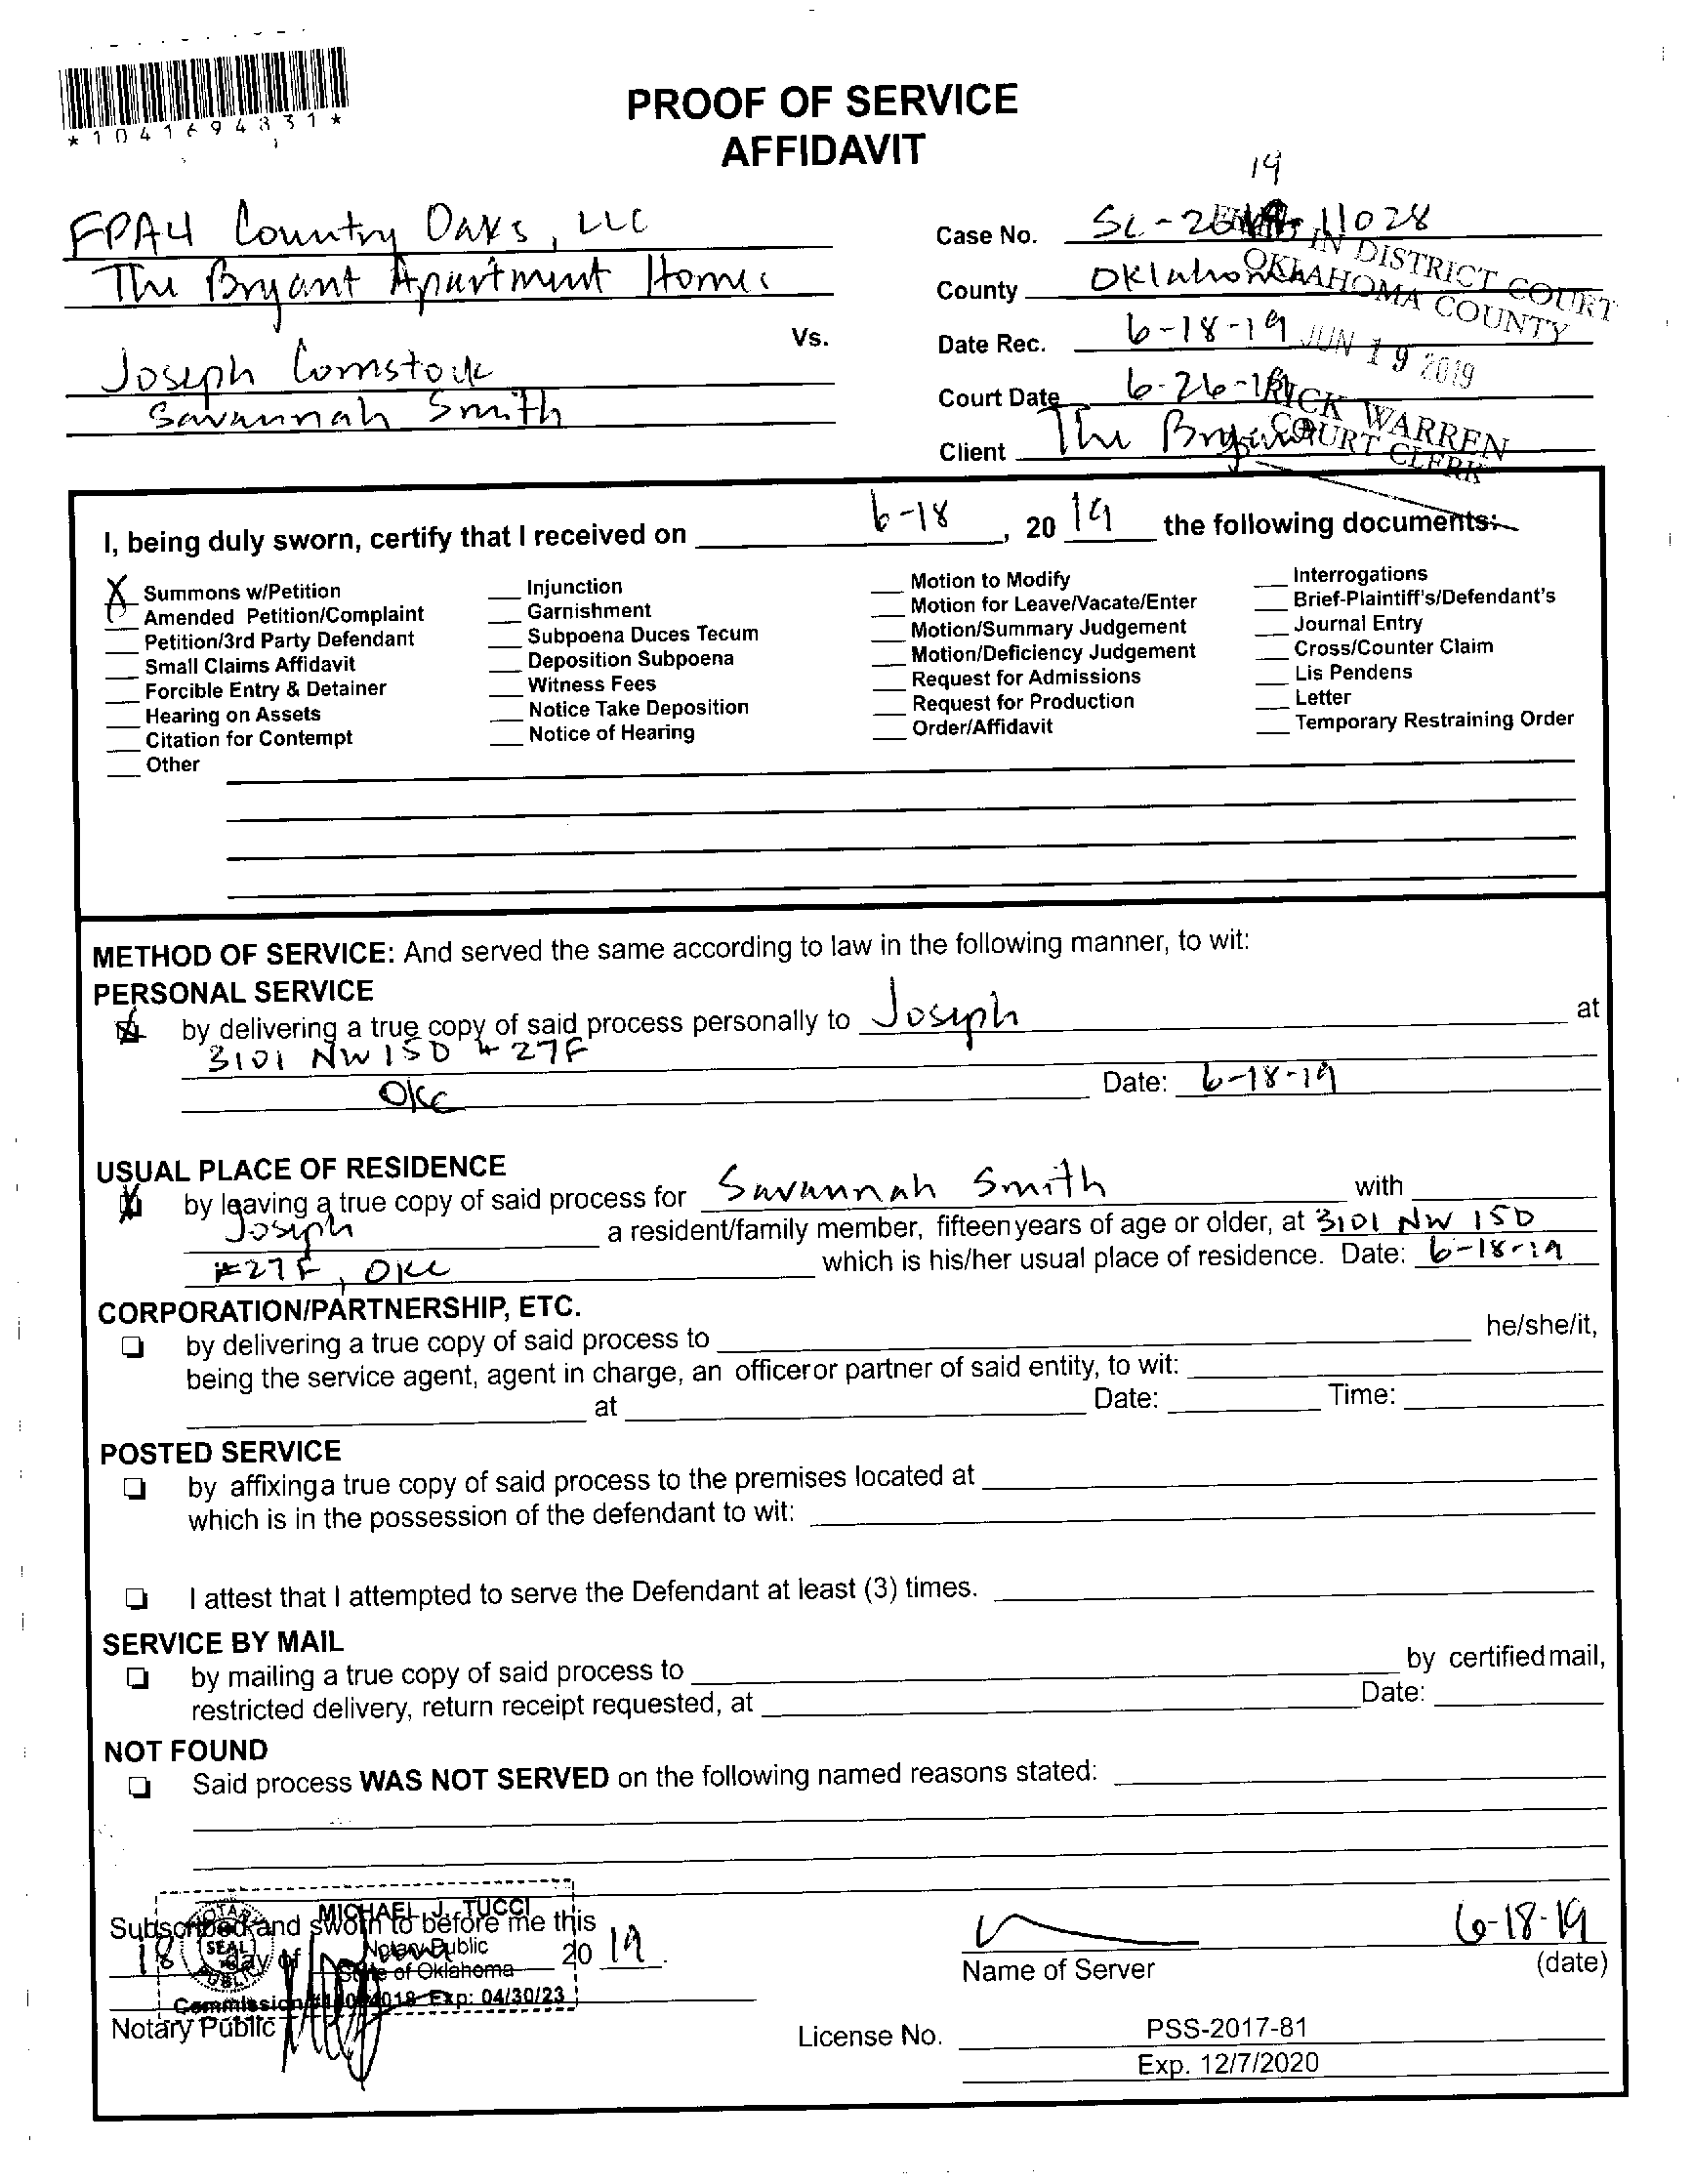 *1041694831*
PROOF OF SERVICE
AFFIDAVIT
FPA4 Country Oaks, LLC
The Bryant Apartment Homes
Vs.
Joseph Comstock
Savannah Smith
19
Case No. SC-20 11028
County Oklahoma
Date Rec. 6-18-19
Court Date 6-26-19
Client The Bryant
FILED IN DISTRICT COURT
OKLAHOMA COUNTY
JUN 19 2019
RICK WARREN
COURT CLERK
I, being duly sworn, certify that I received on 6-18, 2019 the following documents:
X Summons w/Petition
Amended Petition/Complaint
Petition/3rd Party Defendant
Small Claims Affidavit
Forcible Entry & Detainer
Hearing on Assets
Citation for Contempt
Other
Injunction
Garnishment
Subpoena Duces Tecum
Deposition Subpoena
Witness Fees
Notice Take Deposition
Notice of Hearing
Motion to Modify
Motion for Leave/Vacate/Enter
Motion/Summary Judgement
Motion/Deficiency Judgement
Request for Admissions
Request for Production
Order/Affidavit
Interrogations
Brief-Plaintiff's/Defendant's
Journal Entry
Cross/Counter Claim
Lis Pendens
Letter
Temporary Restraining Order
METHOD OF SERVICE: And served the same according to law in the following manner, to wit:
PERSONAL SERVICE
by delivering a true copy of said process personally to Joseph at
3101 NW 150 # 27F
OKC Date: 6-18-19
USUAL PLACE OF RESIDENCE
by leaving a true copy of said process for Savannah Smith with
Joseph a resident/family member, fifteen years of age or older, at 3101 NW 150
#27F, OKC which is his/her usual place of residence. Date: 6-18-19
CORPORATION/PARTNERSHIP, ETC.
by delivering a true copy of said process to he/she/it,
being the service agent, agent in charge, an officer or partner of said entity, to wit:
at Date: Time:
POSTED SERVICE
by affixing a true copy of said process to the premises located at
which is in the possession of the defendant to wit:
I attest that I attempted to serve the Defendant at least (3) times.
SERVICE BY MAIL
by mailing a true copy of said process to by certified mail,
restricted delivery, return receipt requested, at Date:
NOT FOUND
Said process WAS NOT SERVED on the following named reasons stated:
Subscribed and sworn to before me this
18 day of June 2019.
Notary Public
MICHAEL J. TUCCI
Notary Public
State of Oklahoma
Commission Exp: 04/30/23
NOTARY PUBLIC
SEAL
6-18-19
Name of Server (date)
License No. PSS-2017-81
Exp. 12/7/2020